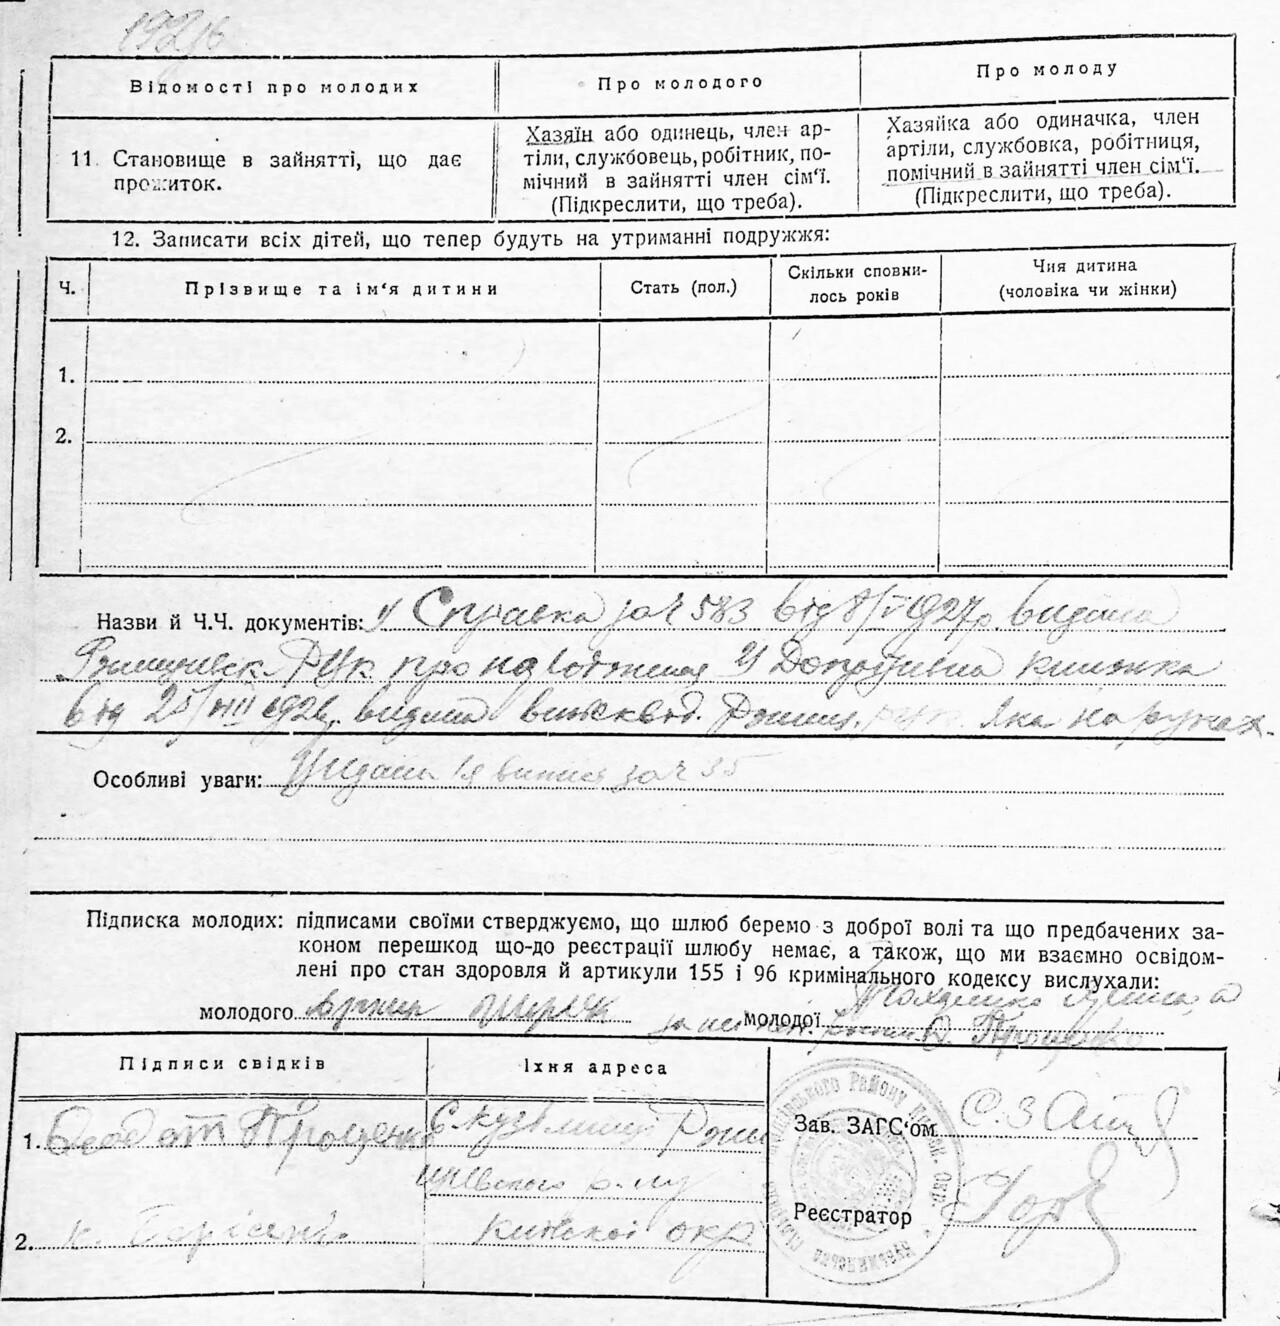 1926
Відомості про молодих
Про молодого
Про молоду
11. Становище в зайнятті, що дає
прожиток.
Хазяїн або одинець, член ар-
тіли, службовець, робітник, по-
мічний в зайнятті член сім'ї.
(Підкреслити, що треба).
Хазяйка або одиначка, член
артіли, службовка, робітниця,
помічний в зайнятті член сім'ї.
(Підкреслити, що треба).
12. Записати всіх дітей, що тепер будуть на утриманні подружжя:
Ч.
Прізвище та ім'я дитини
Стать (пол.)
Скільки сповни-
лось років
Чия дитина
(чоловіка чи жінки)
1.
2.
Назви й Ч.Ч. документів: Справка за ч 583 від 8/V 1927 р. видана
РИК про 2) Допризивна книжка
від 25/VIII 1926 р. видана Ржищ. яка на руках.
Особливі уваги: за ч 35
Підписка молодих: підписами своїми стверджуємо, що шлюб беремо з доброї волі та що предбачених за-
коном перешкод що-до реєстрації шлюбу немає, а також, що ми взаємно освідом-
лені про стан здоровля й артикули 155 і 96 кримінального кодексу вислухали:
молодого
молодої Проценко
Підписи свідків
Їхня адреса
1. Феодот Проценко
с. Кузьминці Ржи
щівського р-ну
2.
Київської окр
Зав. ЗАГС'ом
Реєстратор